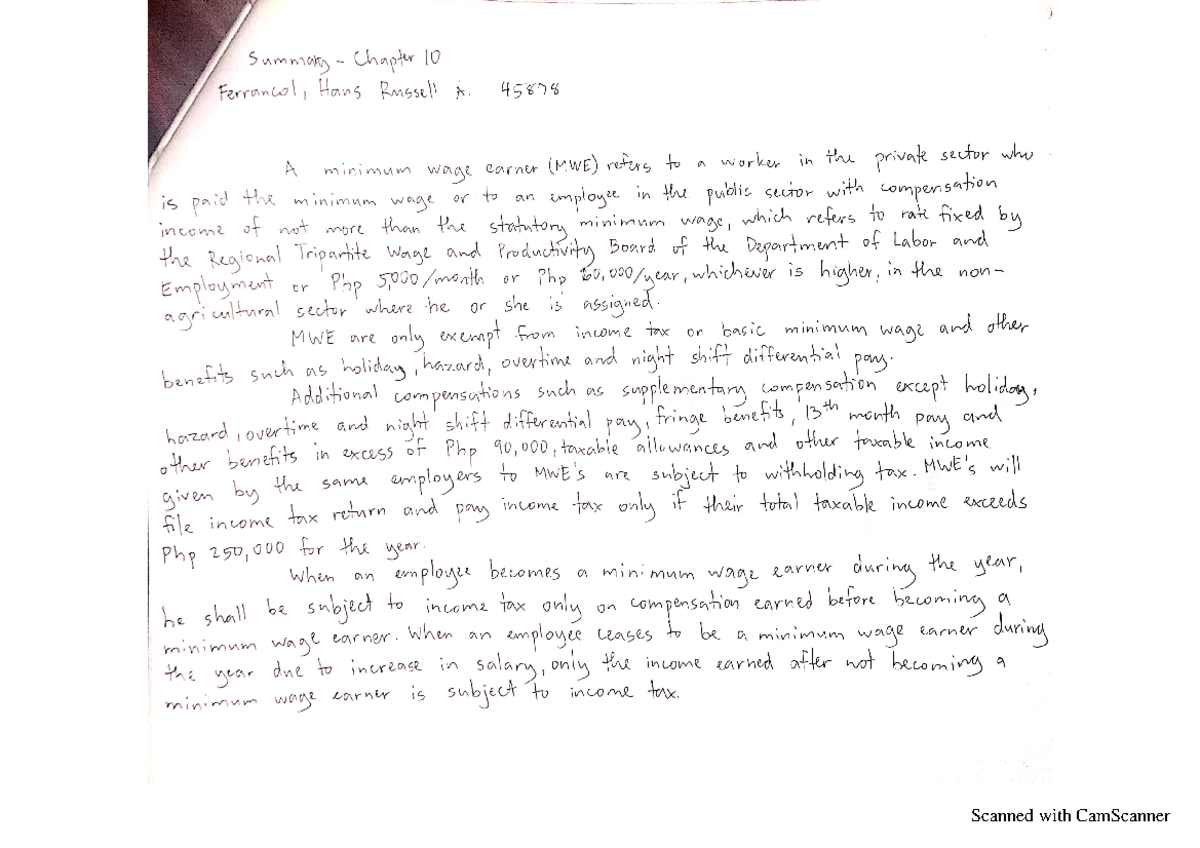 Summary - Chapter 10
Ferrancol, Hans Russell A. 45878
A minimum wage earner (MWE) refers to a worker in the private sector who
is paid the minimum wage or to an employee in the public sector with compensation
income of not more than the statutory minimum wage, which refers to rate fixed by
the Regional Tripartite Wage and Productivity Board of the Department of Labor and
Employment or Php 5,000/month or Php 60,000/year, whichever is higher, in the non-
agricultural sector where he or she is assigned.
MWE are only exempt from income tax on basic minimum wage and other
benefits such as holiday, hazard, overtime and night shift differential pay.
Additional compensations such as supplementary compensation except holiday,
hazard, overtime and night shift differential pay, fringe benefits, 13th month pay and
other benefits in excess of Php 90,000, taxable allowances and other taxable income
given by the same employers to MWE's are subject to withholding tax. MWE's will
file income tax return and pay income tax only if their total taxable income exceeds
Php 250,000 for the year.
When an employee becomes a minimum wage earner during the year,
he shall be subject to income tax only on compensation earned before becoming a
minimum wage earner. When an employee ceases to be a minimum wage earner during
the year due to increase in salary, only the income earned after not becoming a
minimum wage earner is subject to income tax.
Scanned with CamScanner